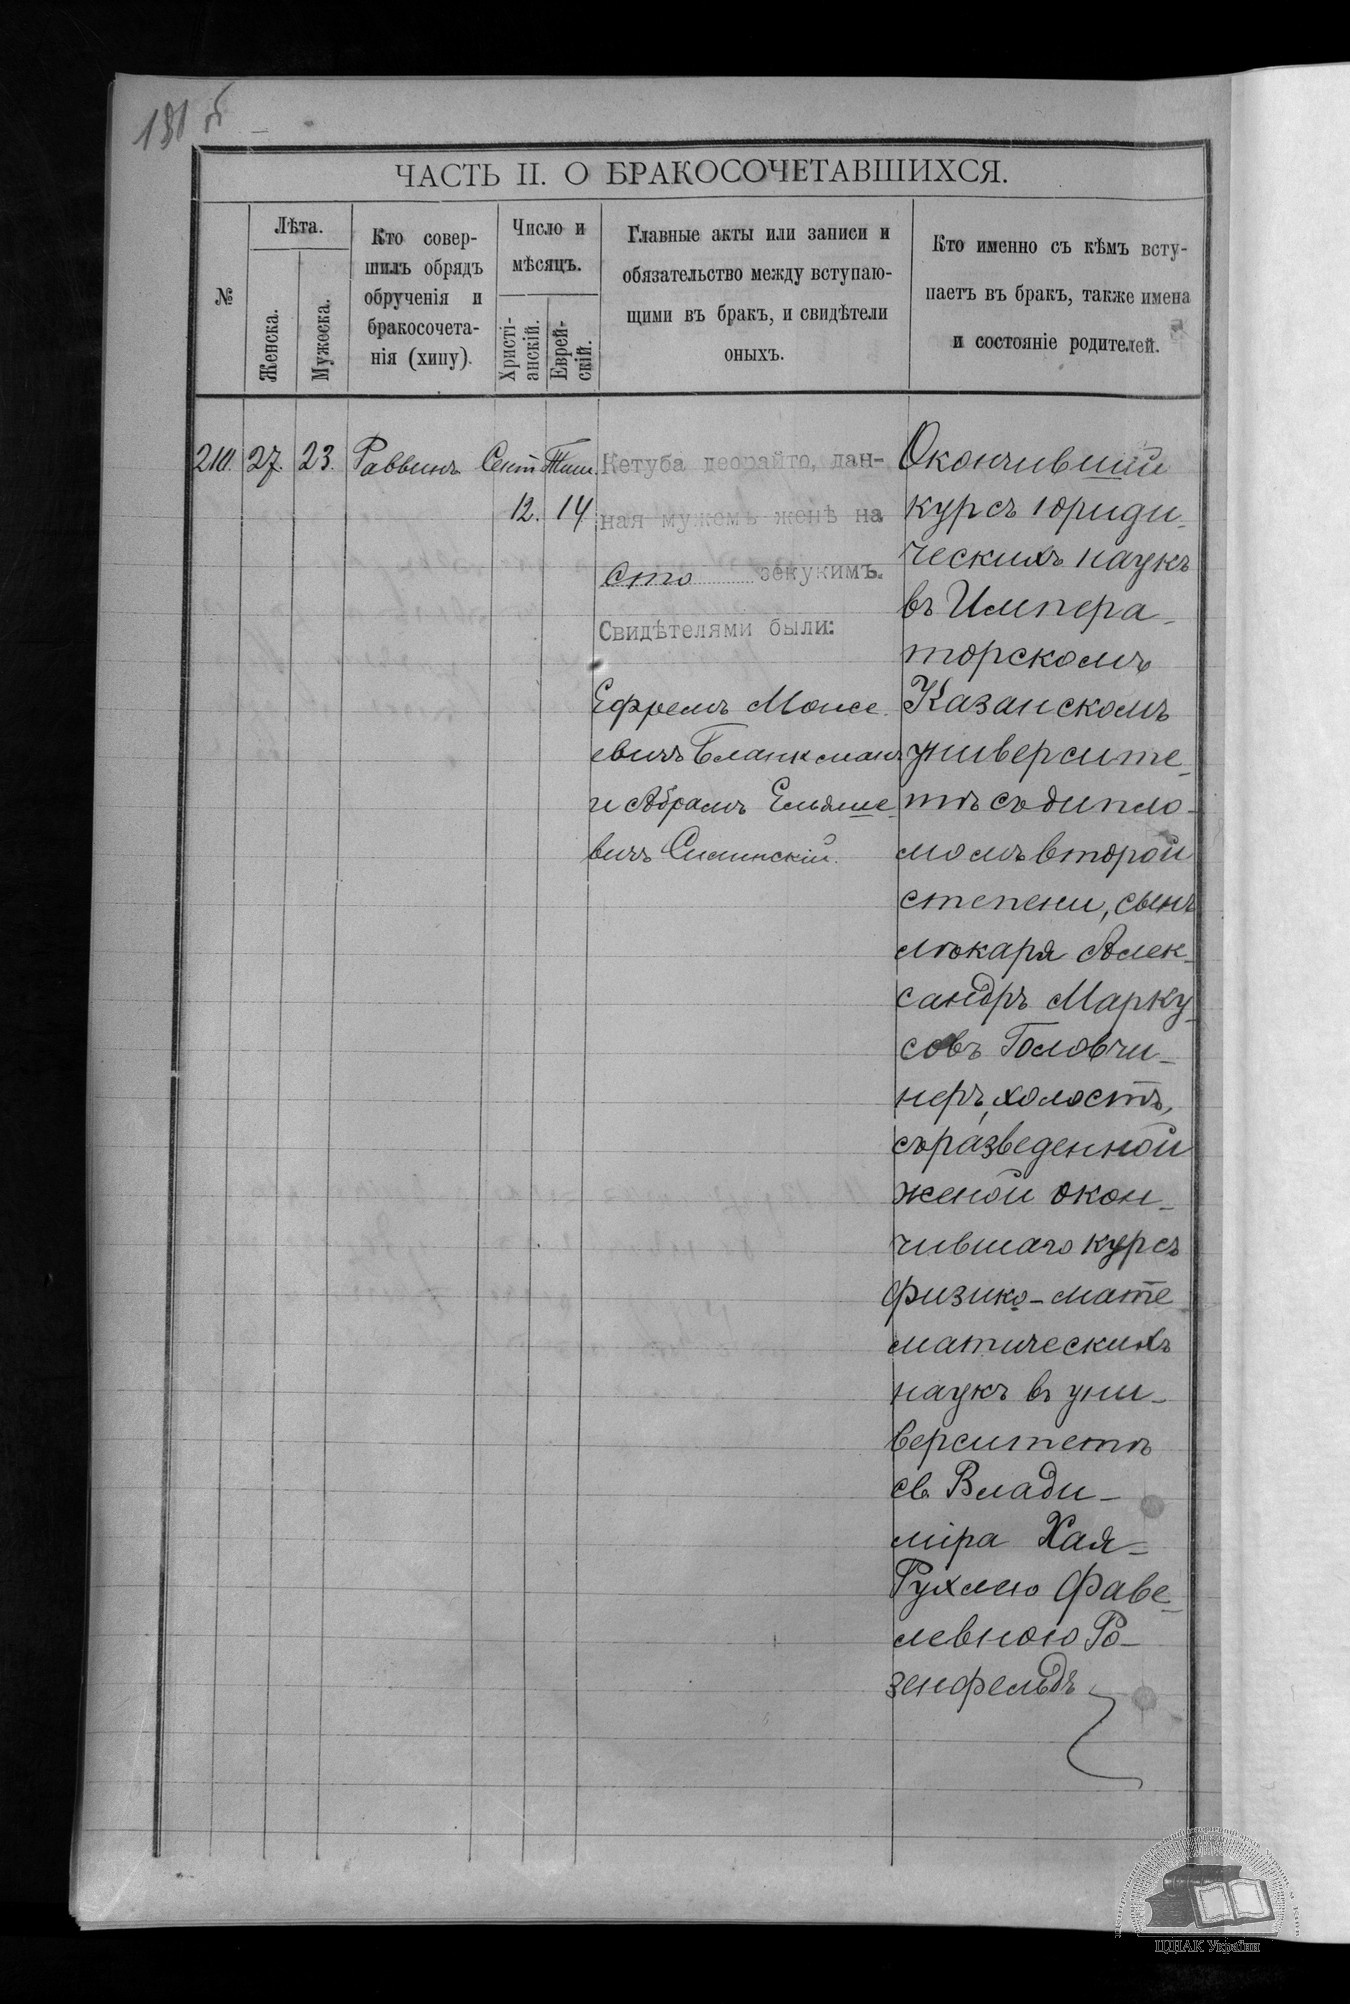 181 б
ЧАСТЬ II. О БРАКОСОЧЕТАВШИХСЯ.
№
Лѣта.
Женска.
Мужеска.
Кто совер-
шилъ обрядъ
обрученія и
бракосочета-
нія (хипу).
Число и
мѣсяцъ.
Христі-
анскій.
Еврей-
скій.
Главные акты или записи и
обязательство между вступаю-
щими въ брак, и свидѣтели
оныхъ.
Кто именно съ кѣмъ всту-
паетъ въ бракъ, также имена
и состояніе родителей.
210. 27. 23. Раввинъ Сент. Тиш.
12. 14
Кетуба деорайто, дан-
ная мужемъ женѣ на
Сто зекукимъ.
Свидѣтелями были:
Ефремъ Моисе
евичъ Бланкманъ
и Абрамъ Ельяше
вичъ
Окончившій
курсъ юриди-
ческихъ наукъ
въ Импера-
торскомъ
Казанскомъ
университе-
тѣ съ дипло-
момъ второй
степени, сынъ
лѣкаря Алек-
сандръ Марку-
совъ Головчи-
неръ, холостъ,
съ разведенной
женой окон-
чившаго курсъ
физико-мате
матическихъ
наукъ въ уни-
верситетѣ
св. Влади-
міра Хая-
Рухлею Фаве-
левною Ро-
зенфельдъ
ЦДІАК України